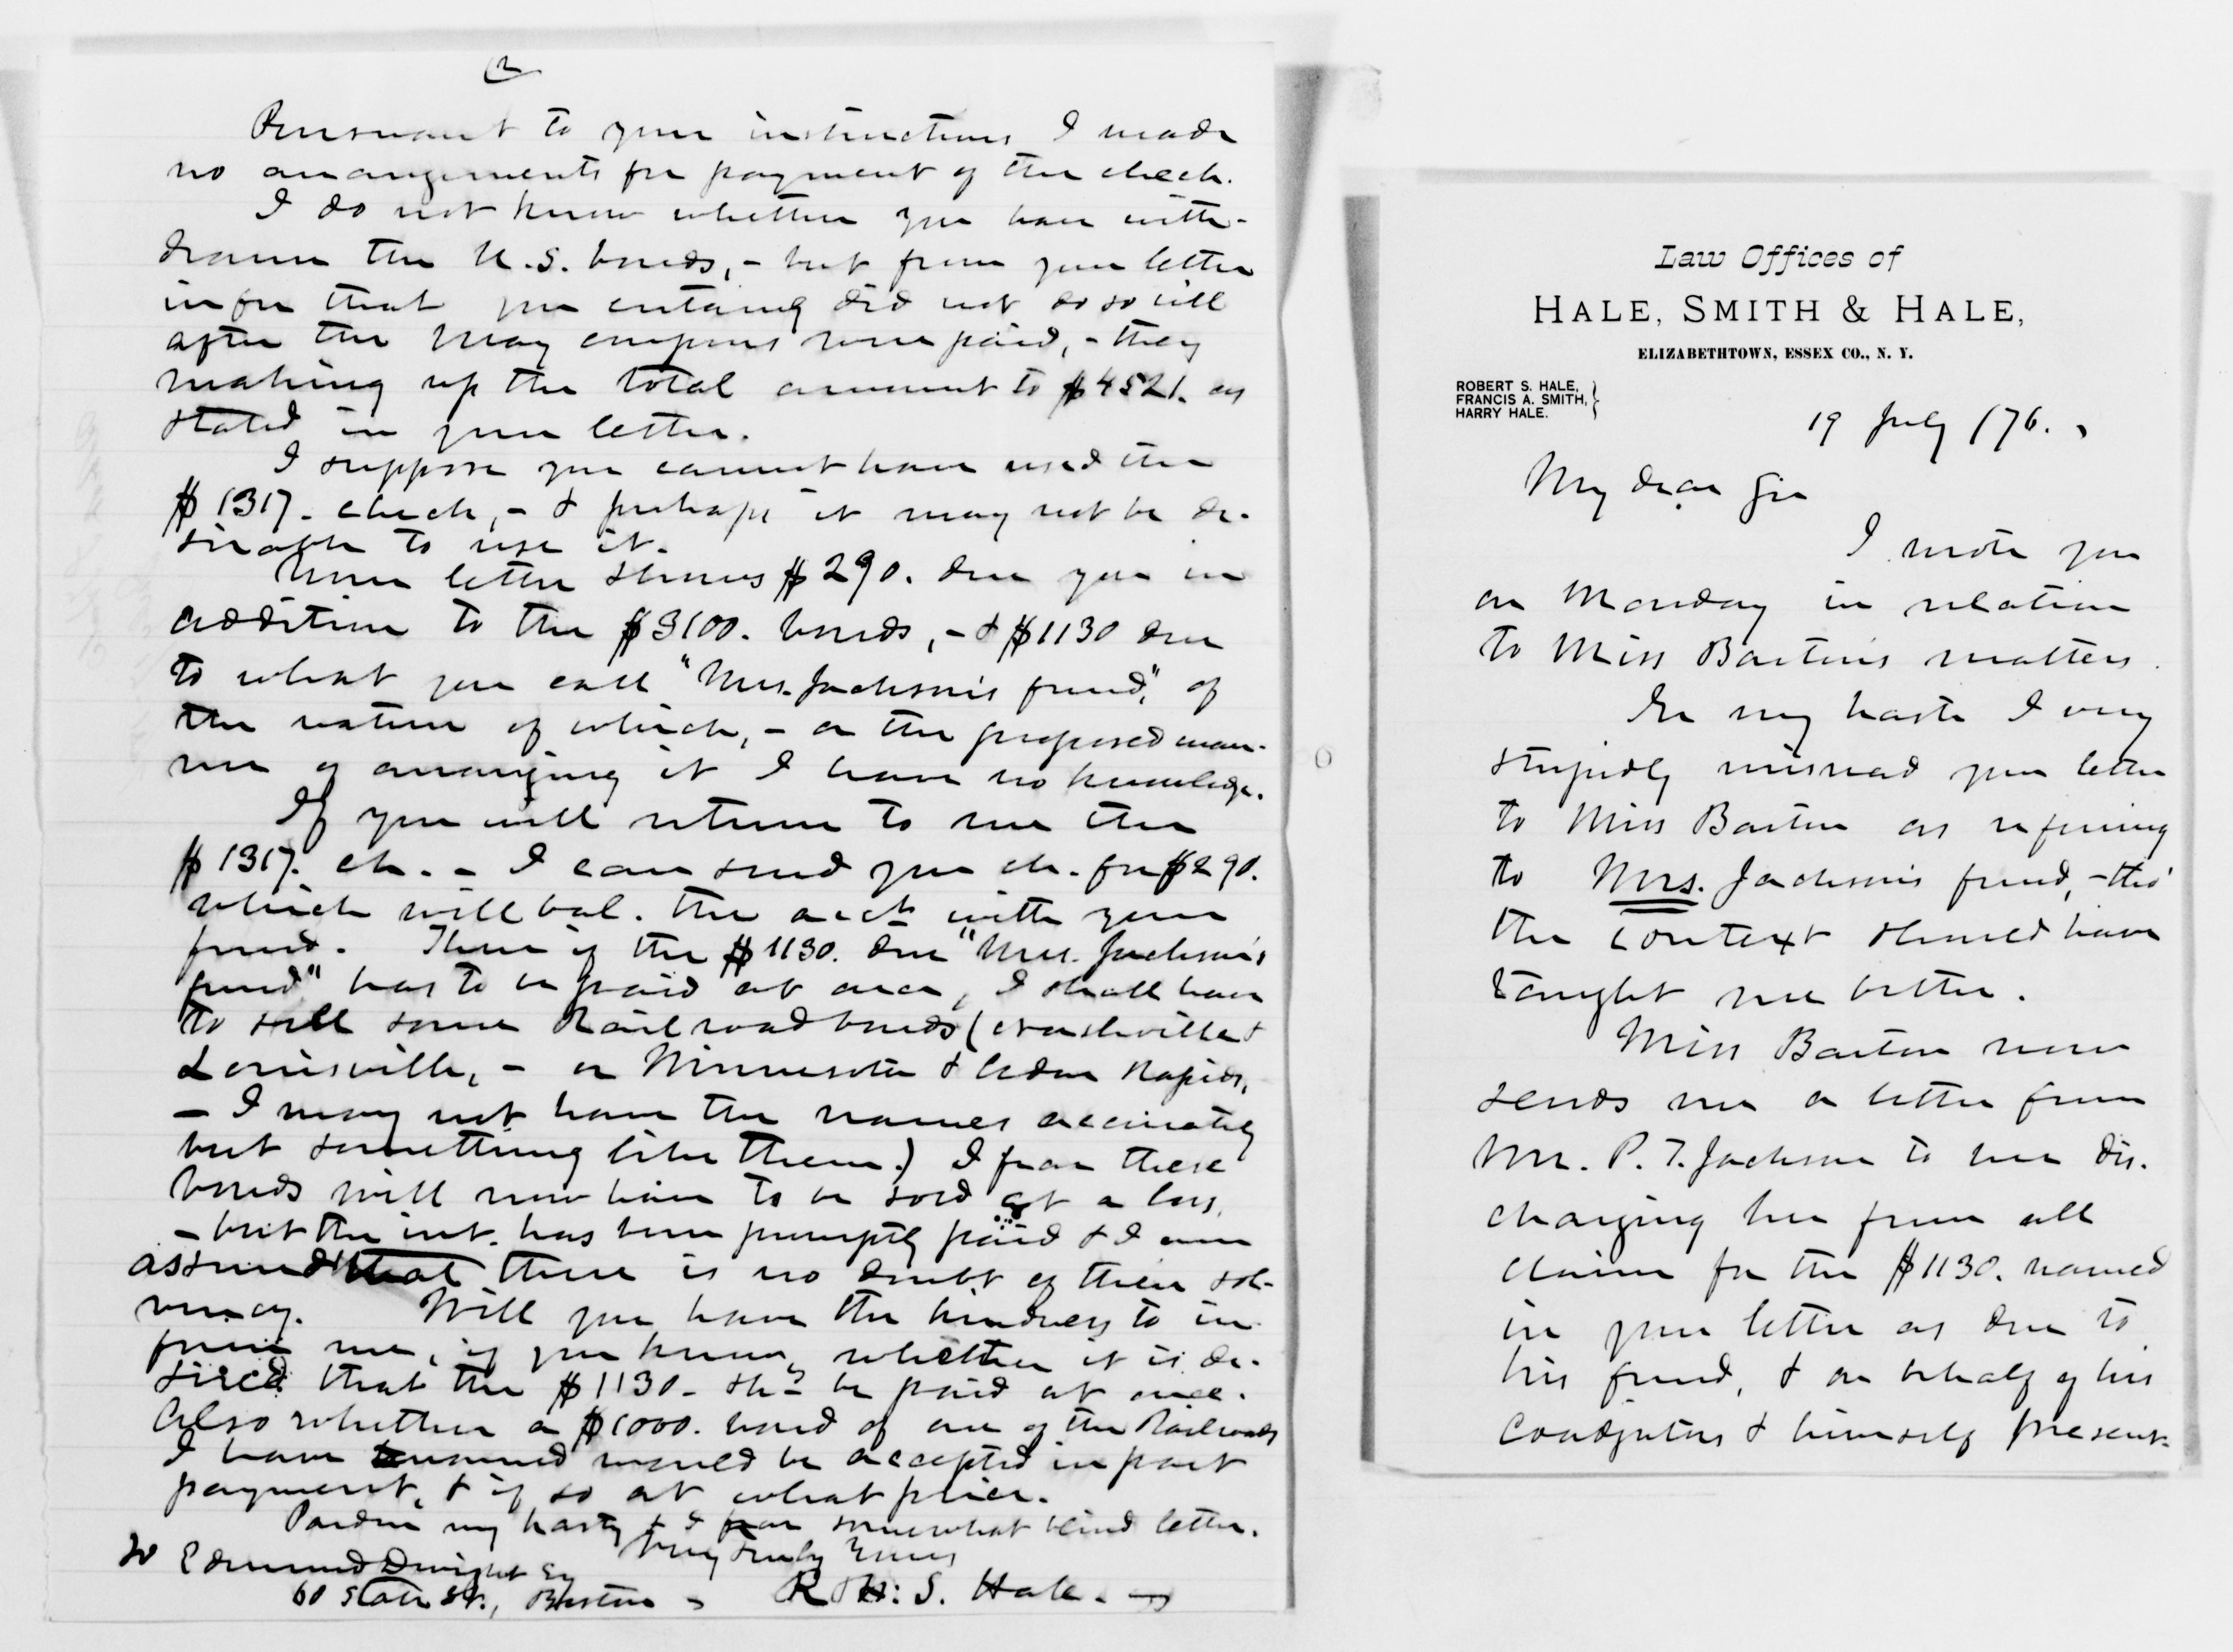 (2
Pursuant to your instructions I made
no arrangements for payment of the check.
I do not know whether you have with-
drawn the U.S. bonds, - but from your letter
infer that you certainly did not do so till
after the May coupons were paid, - they
making up the total amount to $4521. as
stated in your letter.
I suppose you cannot have used the
$1317. check, - & perhaps it may not be de-
sirable to use it.
Your letter shows $290. due you in
addition to the $3100. bonds, - & $1130 due
to what you call "Mrs. Jackson's fund", of
the nature of which, - or the proposed man-
ner of arranging it I have no knowledge.
If you will return to me the
$1317. ch. - I can send you ch. for $290.
which will bal. the acct with your
fund. Then if the $1130. due "Mrs. Jackson's
fund" has to be paid at once, I shall have
to sell some Railroad bonds (Nashville &
Louisville, - or Minnesota & Cedar Rapids,
- I may not have the names accurately
but something like them.) I fear these
bonds will now have to be sold at a loss,
- but the int. has been promptly paid & I am
assured that there is no doubt of their sol-
vency. Will you have the kindness to in-
form me, if you know, whether it is de-
sired that the $1130 - shd be paid at once.
Also whether a $1000. bond of one of the Railroads
I have named would be accepted in part
payment, & if so at what price.
Pardon my hasty & I fear somewhat blind letter.
Very truly Yours
To Edmund Dwight Esq
60 State St., Boston - Rob: S. Hale. -
Law Offices of
HALE, SMITH & HALE,
ELIZABETHTOWN, ESSEX CO., N. Y.
ROBERT S. HALE,
FRANCIS A. SMITH,
HARRY HALE.
19 July /76.
My dear Sir
I wrote you
on Monday in relation
to Miss Barton's matters.
In my haste I very
stupidly misread your letter
to Miss Barton as referring
to Mrs. Jackson's fund, - tho'
the context should have
taught me better.
Miss Barton now
sends me a letter from
Mr. P. T. Jackson to her dis-
charging her from all
claim for the $1130. named
in your letter as due to
his fund, & on behalf of his
coadjutors & himself present-